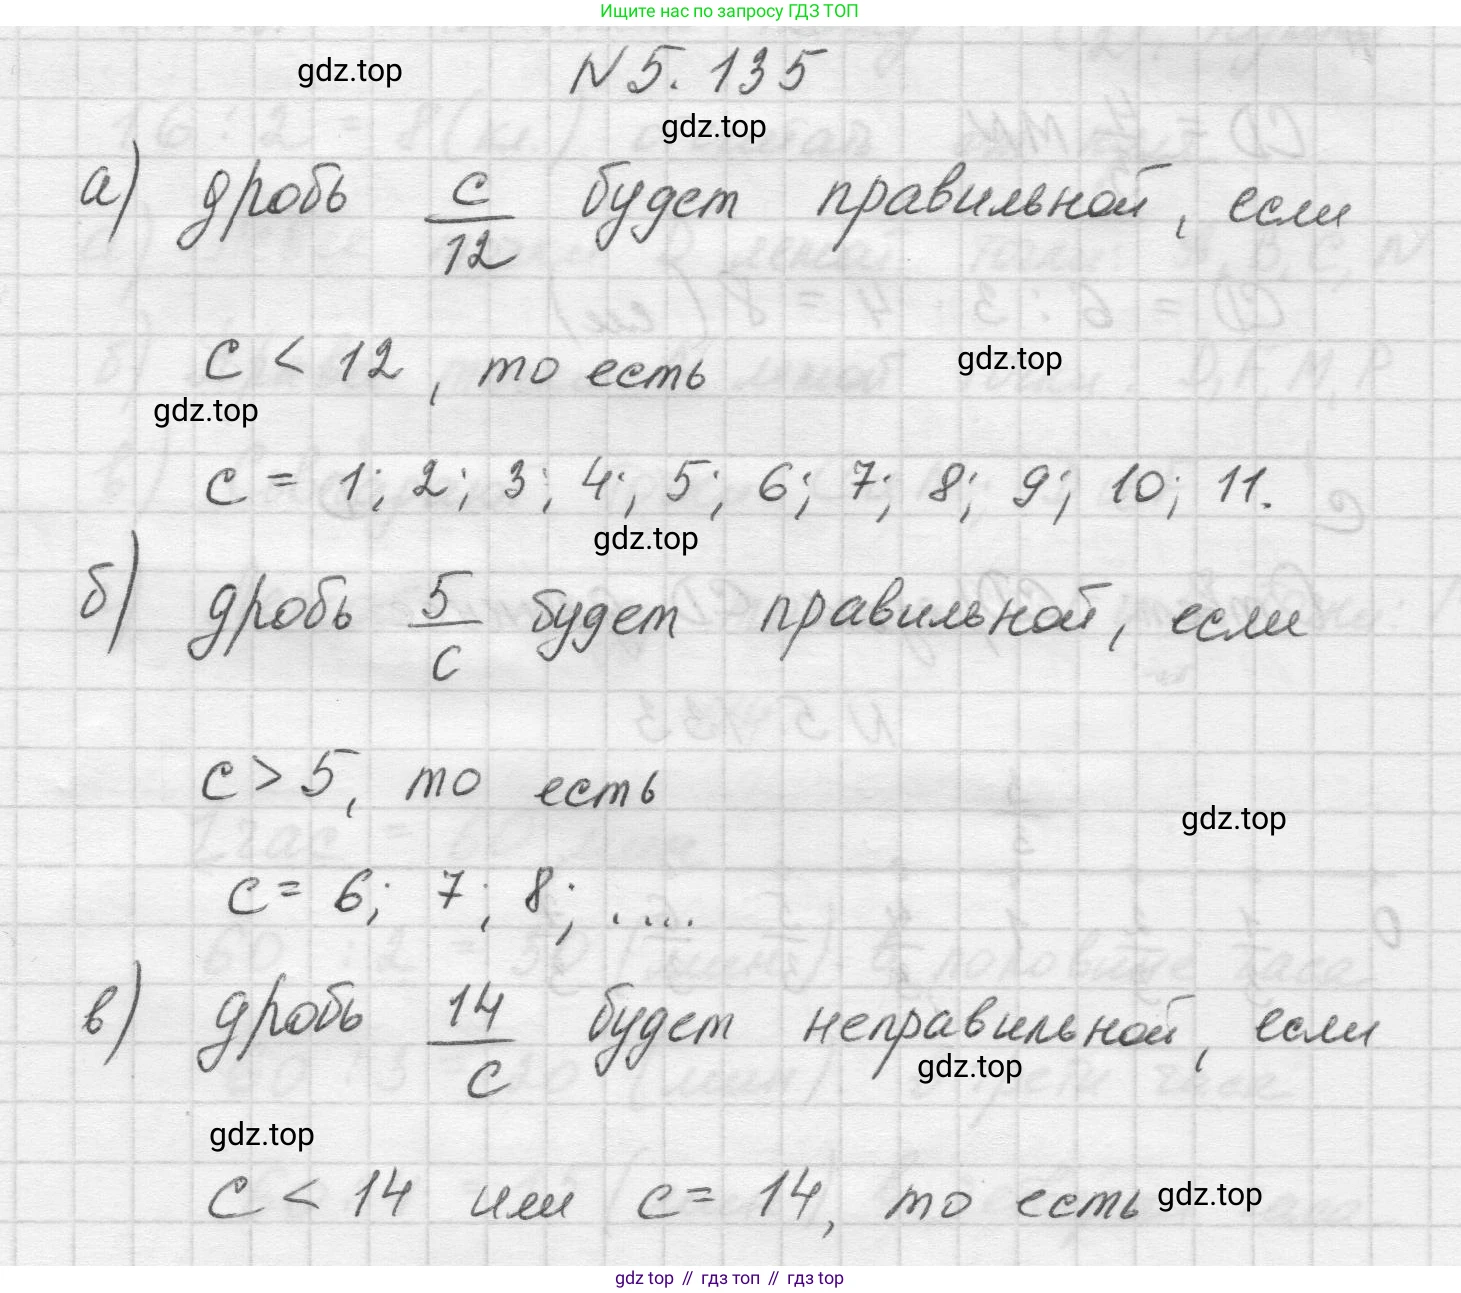 Ищите нас по запросу ГДЗ ТОП
gdz.top
N 5. 135
gdz.top
а) дробь c/12 будет правильной, если
c < 12, то есть
gdz.top
gdz.top
c = 1; 2; 3; 4; 5; 6; 7; 8; 9; 10; 11.
gdz.top
б) дробь 5/c будет правильной, если
c > 5, то есть
gdz.top
c = 6; 7; 8; ....
в) дробь 14/c будет неправильной, если
gdz.top
gdz.top
c < 14 или c = 14, то есть
gdz.top
gdz top // гдз топ // гдз top